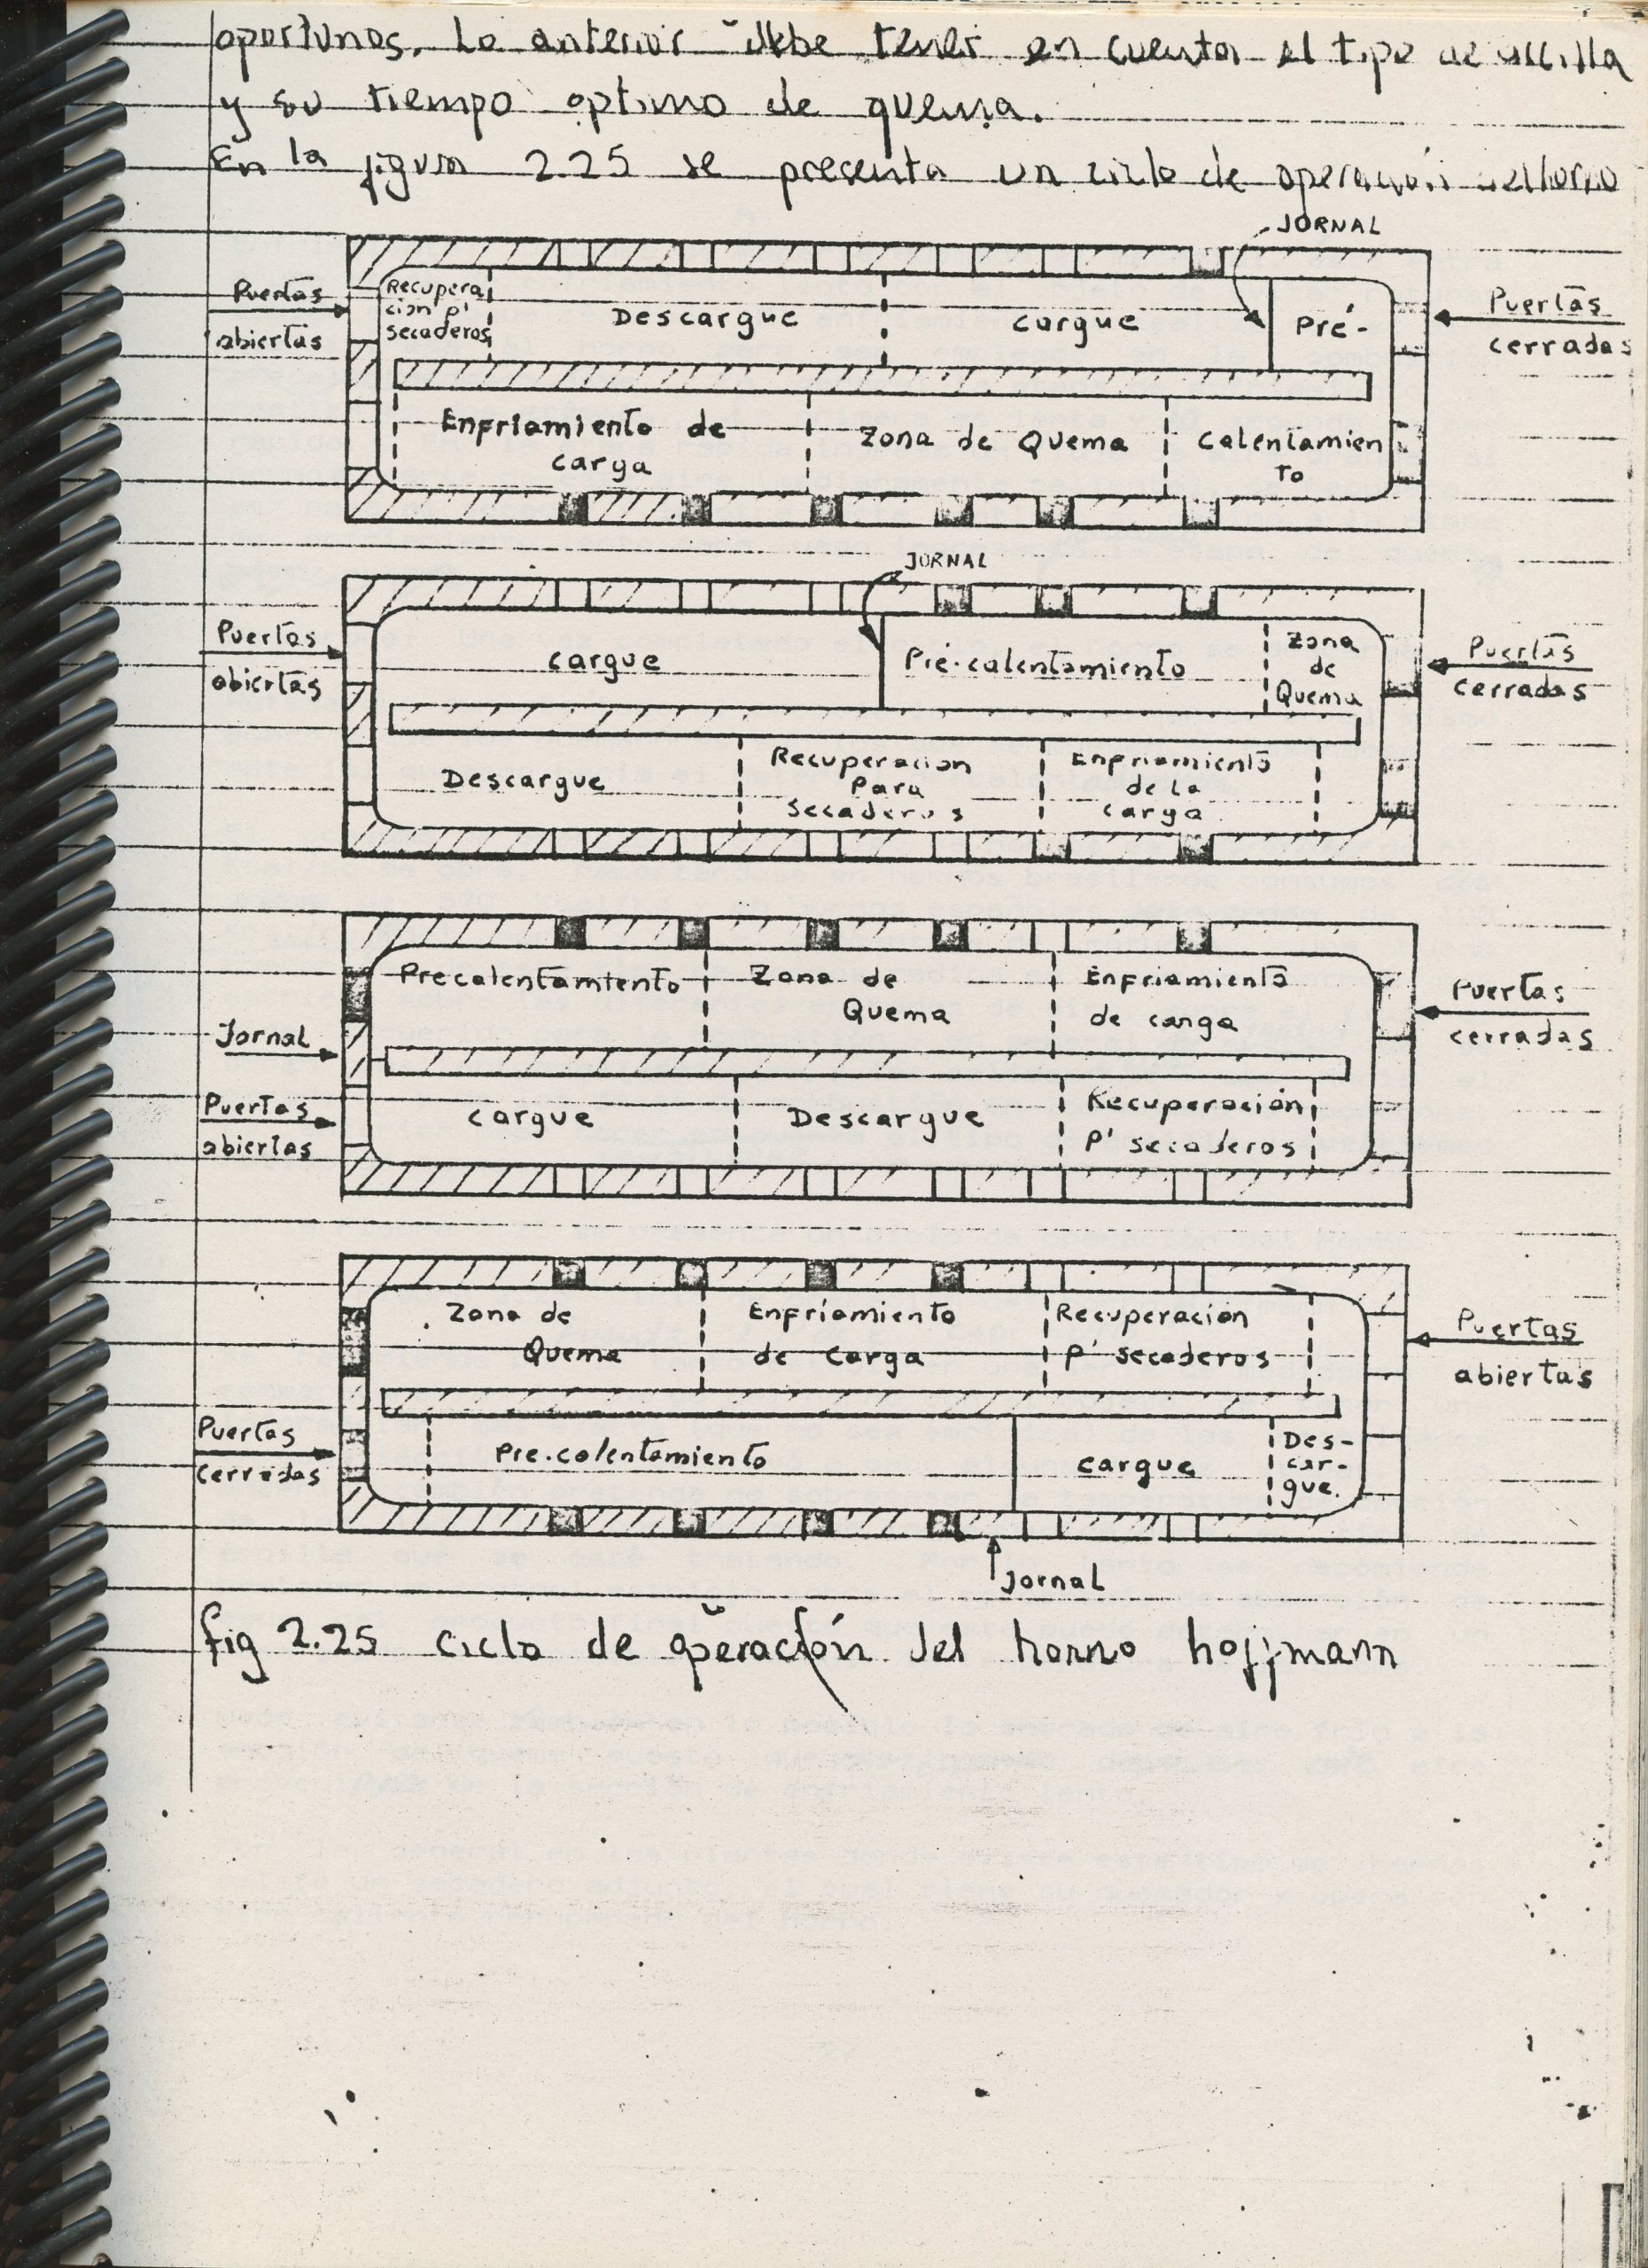 oportunos. Lo anterior debe tener en cuenta el tipo de arcilla
y su tiempo optimo de quema.
En la figura 2.25 se presenta un ciclo de operación del horno
JORNAL
Puertas
abiertas
Recupera
cion p'
secaderos
Descargue
cargue
Pré-
Puertas
cerradas
Enfriamiento de
carga
Zona de Quema
calentamien
to
JORNAL
Puertas
abiertas
cargue
Pre-calentamiento
Zona
de
Quema
Puertas
cerradas
Descargue
Recuperacion
Para
Secaderos
Enfriamiento
de la
carga
Precalentamiento
Zona de
Quema
Enfriamiento
de carga
Puertas
cerradas
Jornal
Puertas
abiertas
cargue
Descargue
Recuperación
P' secaderos
Zona de
Quema
Enfriamiento
de Carga
Recuperación
P' secaderos
Puertas
abiertas
Puertas
Cerradas
Pre-calentamiento
cargue
Des-
car-
gue.
Jornal
fig 2.25 ciclo de operación del horno hoffmann